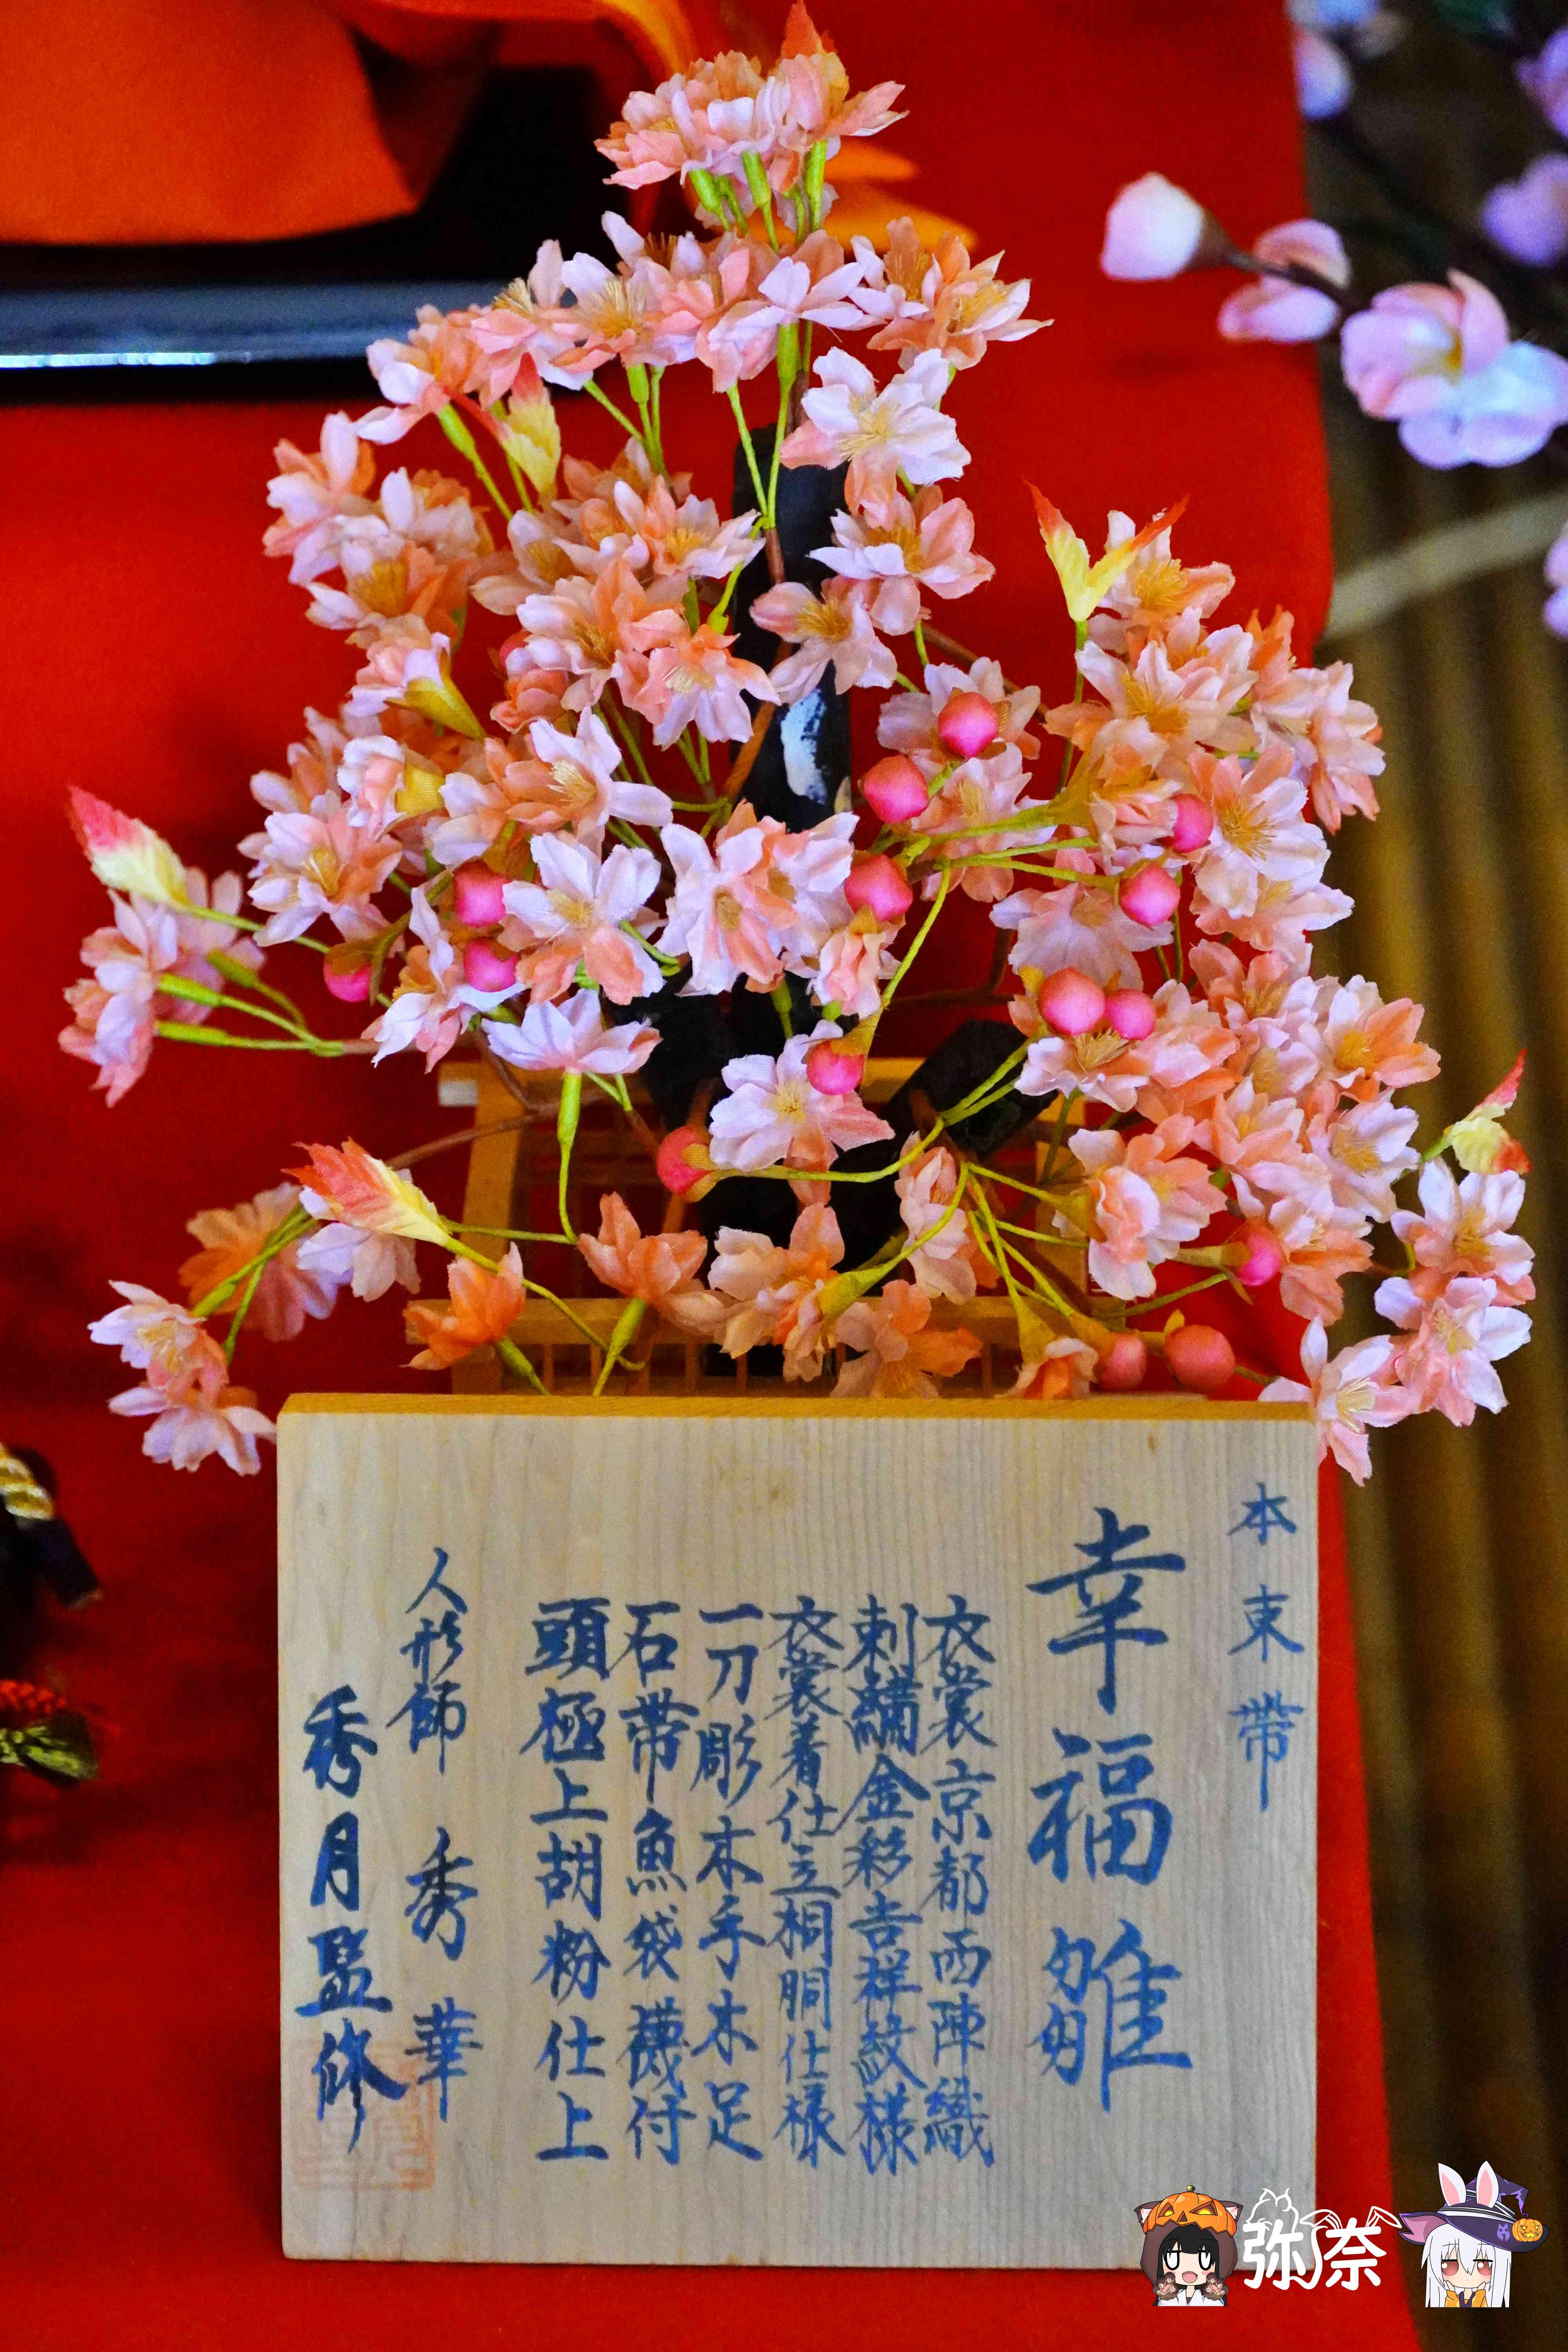 本束帯
幸福雛
衣裳京都西陣織
刺繍金彩吉祥紋様
衣裳着仕立桐胴仕様
一刀彫木手木足
石帯魚袋襪付
頭極上胡粉仕上
人形師 秀華
秀月監修
弥奈